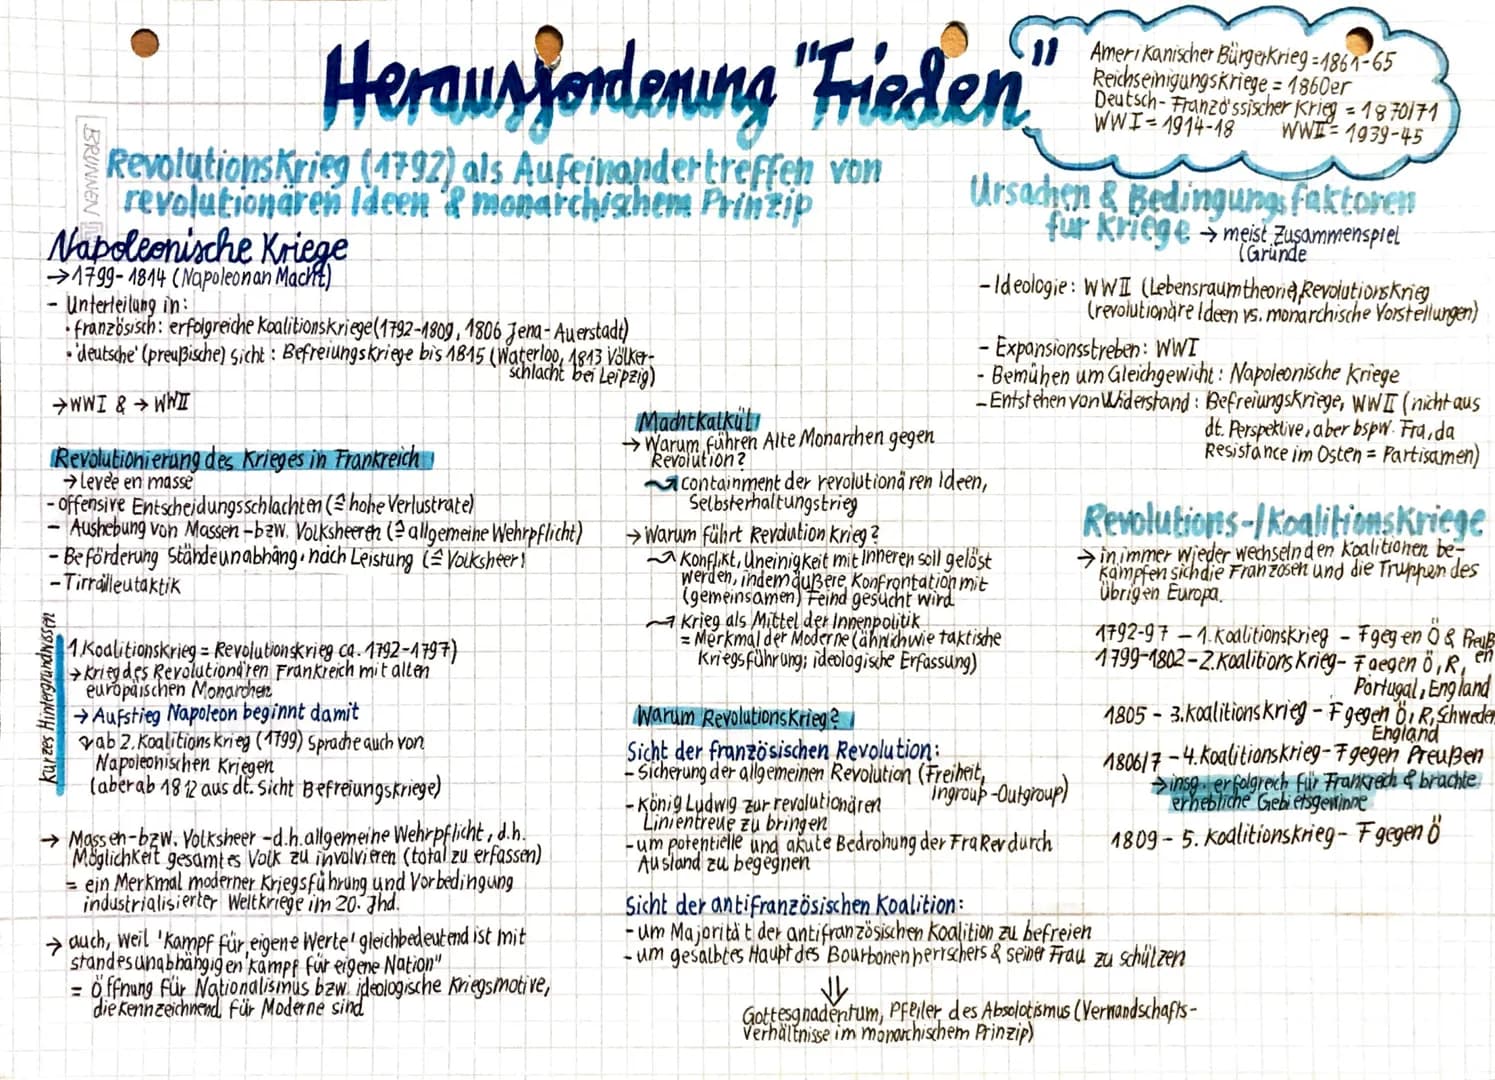 Herausforderung "Frieden"
Amerikanischer Bürgerkrieg = 1861-65
Reichseinigungskriege = 1860er
Deutsch-Französsischer Krieg = 1870/71
WWI = 1914-18 WWII = 1939-45
BRUNNEN
Revolutionskrieg (1792) als Aufeinandertreffen von
revolutionären Ideen & monarchischem Prinzip
Napoleonische Kriege
→ 1799-1814 (Napoleon an Macht)
- Unterteilung in:
· französisch: erfolgreiche Koalitionskriege (1792-1809, 1806 Jena-Auerstadt)
· 'deutsche' (preußische) Sicht: Befreiungskriege bis 1815 (Waterloo, 1813 Völker-
schlacht bei Leipzig)
→ WWI & → WWII
Revolutionierung des Krieges in Frankreich
→ Levée en masse
- offensive Entscheidungsschlachten (≙ hohe Verlustrate)
- Aushebung von Massen- bzw. Volksheeren (≙ allgemeine Wehrpflicht)
- Beförderung Ständeunabhäng. nach Leistung (≙ Volksheer)
- Tirrailleutaktik
Kurzes Hintergrundwissen
1. Koalitionskrieg = Revolutionskrieg ca. 1792-1797)
→ Krieg des Revolutionären Frankreich mit alten
europäischen Monarchen
→ Aufstieg Napoleon beginnt damit
ab 2. Koalitionskrieg (1799) Sprache auch von
Napoleonischen Kriegen
(aber ab 1812 aus dt. Sicht Befreiungskriege)
→ Massen- bzw. Volksheer - d.h. allgemeine Wehrpflicht, d.h.
Möglichkeit gesamtes Volk zu involvieren (total zu erfassen)
= ein Merkmal moderner Kriegsführung und Vorbedingung
industrialisierter Weltkriege im 20. Jhd.
→ auch, weil 'Kampf für eigene Werte' gleichbedeutend ist mit
standesunabhängigen "Kampf für eigene Nation"
= Öffnung für Nationalismus bzw. ideologische Kriegsmotive,
die kennzeichnend für Moderne sind
Machtkalkül
→ Warum führen Alte Monarchen gegen
Revolution?
↝ containment der revolutionären Ideen,
Selbsterhaltungstrieg
→ Warum führt Revolution Krieg?
↝ Konflikt, Uneinigkeit mit Inneren soll gelöst
werden, indem äußere Konfrontation mit
(gemeinsamen) Feind gesucht wird
↝ Krieg als Mittel der Innenpolitik
= Merkmal der Moderne (ähnlich wie taktische
Kriegsführung; ideologische Erfassung)
Warum Revolutionskrieg?
Sicht der französischen Revolution:
- Sicherung der allgemeinen Revolution (Freiheit,
Ingroup-Outgroup)
- König Ludwig zur revolutionären
Linientreue zu bringen
- um potentielle und akute Bedrohung der Fra Rev durch
Ausland zu begegnen
Sicht der antifranzösischen Koalition:
- um Majorität der antifranzösischen Koalition zu befreien
- um gesalbtes Haupt des Bourbonenherrschers & seiner Frau zu schützen
⇓
Gottesgnadentum, Pfeiler des Absolotismus (Verwandschafts-
verhältnisse im monarchischem Prinzip)
Ursachen & Bedingungsfaktoren
für Kriege → meist Zusammenspiel
(Gründe
- Ideologie: WWII (Lebensraumtheorie), Revolutionskrieg
(revolutionäre Ideen vs. monarchische Vorstellungen)
- Expansionsstreben: WWI
- Bemühen um Gleichgewicht: Napoleonische Kriege
- Entstehen von Widerstand: Befreiungskriege, WWII (nicht aus
dt. Perspektive, aber bspw. Fra, da
Resistance im Osten = Partisamen)
Revolutions-/Koalitionskriege
→ in immer wieder wechselnden Koalitionen be-
kämpfen sich die Franzosen und die Truppen des
übrigen Europa.
1792-97 - 1. Koalitionskrieg - F gegen Ö & Preuß
en
1799-1802 - 2. Koalitionskrieg - F gegen Ö, R,
Portugal, England
1805 - 3. Koalitionskrieg - F gegen Ö, R, Schweden
England
1806/7 - 4. Koalitionskrieg - F gegen Preußen
→ insg. erfolgreich für Frankreich & brachte
erhebliche Gebietsgewinne
1809 - 5. Koalitionskrieg - F gegen Ö